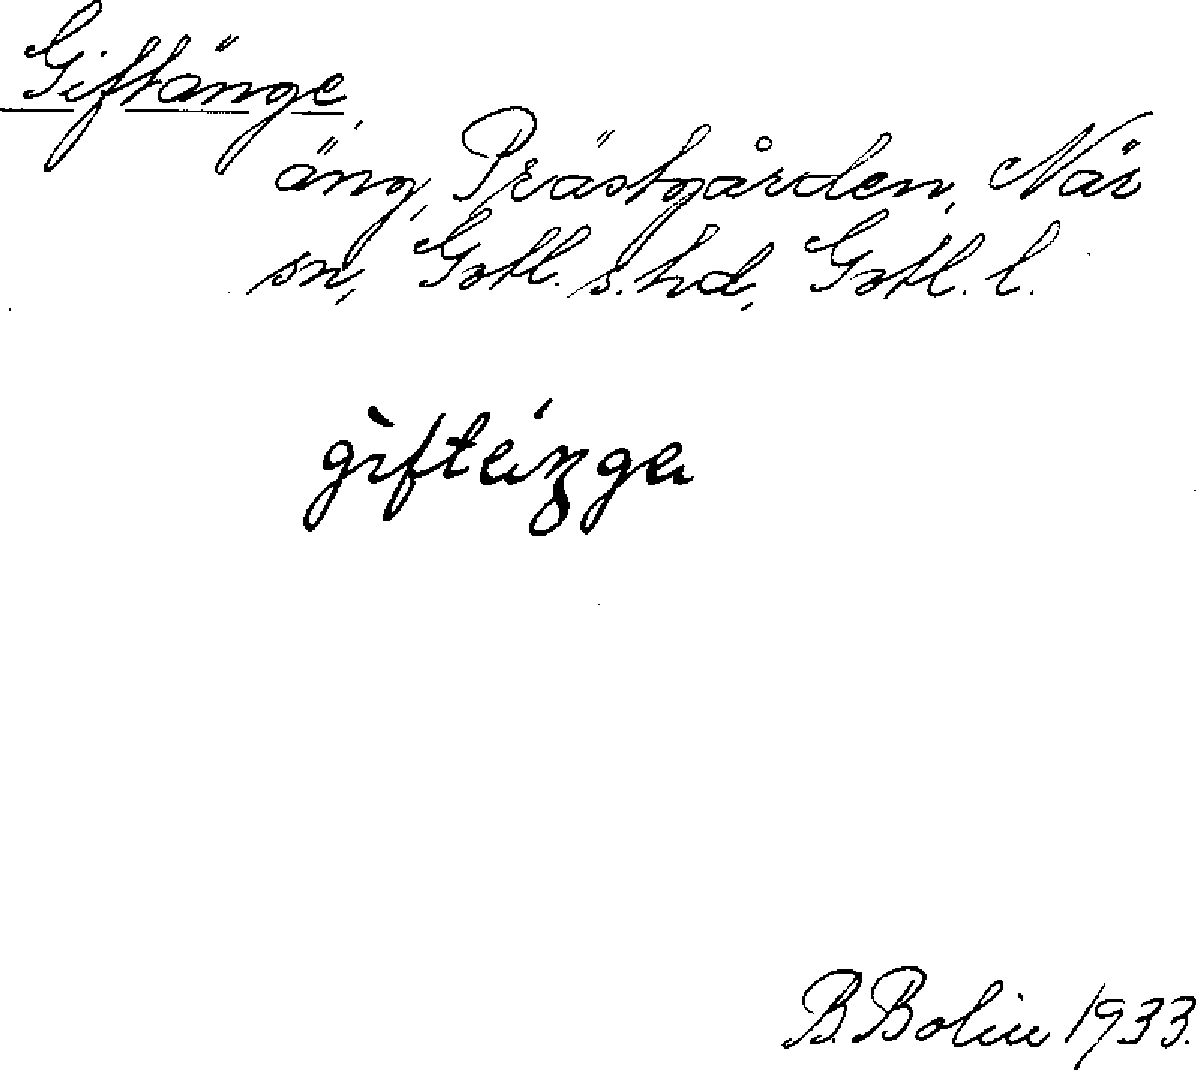 Giftänge,
äng, Prästgården, När
sn, Gotl. s. hd, Gotl. l.
B. Bolin 1933.